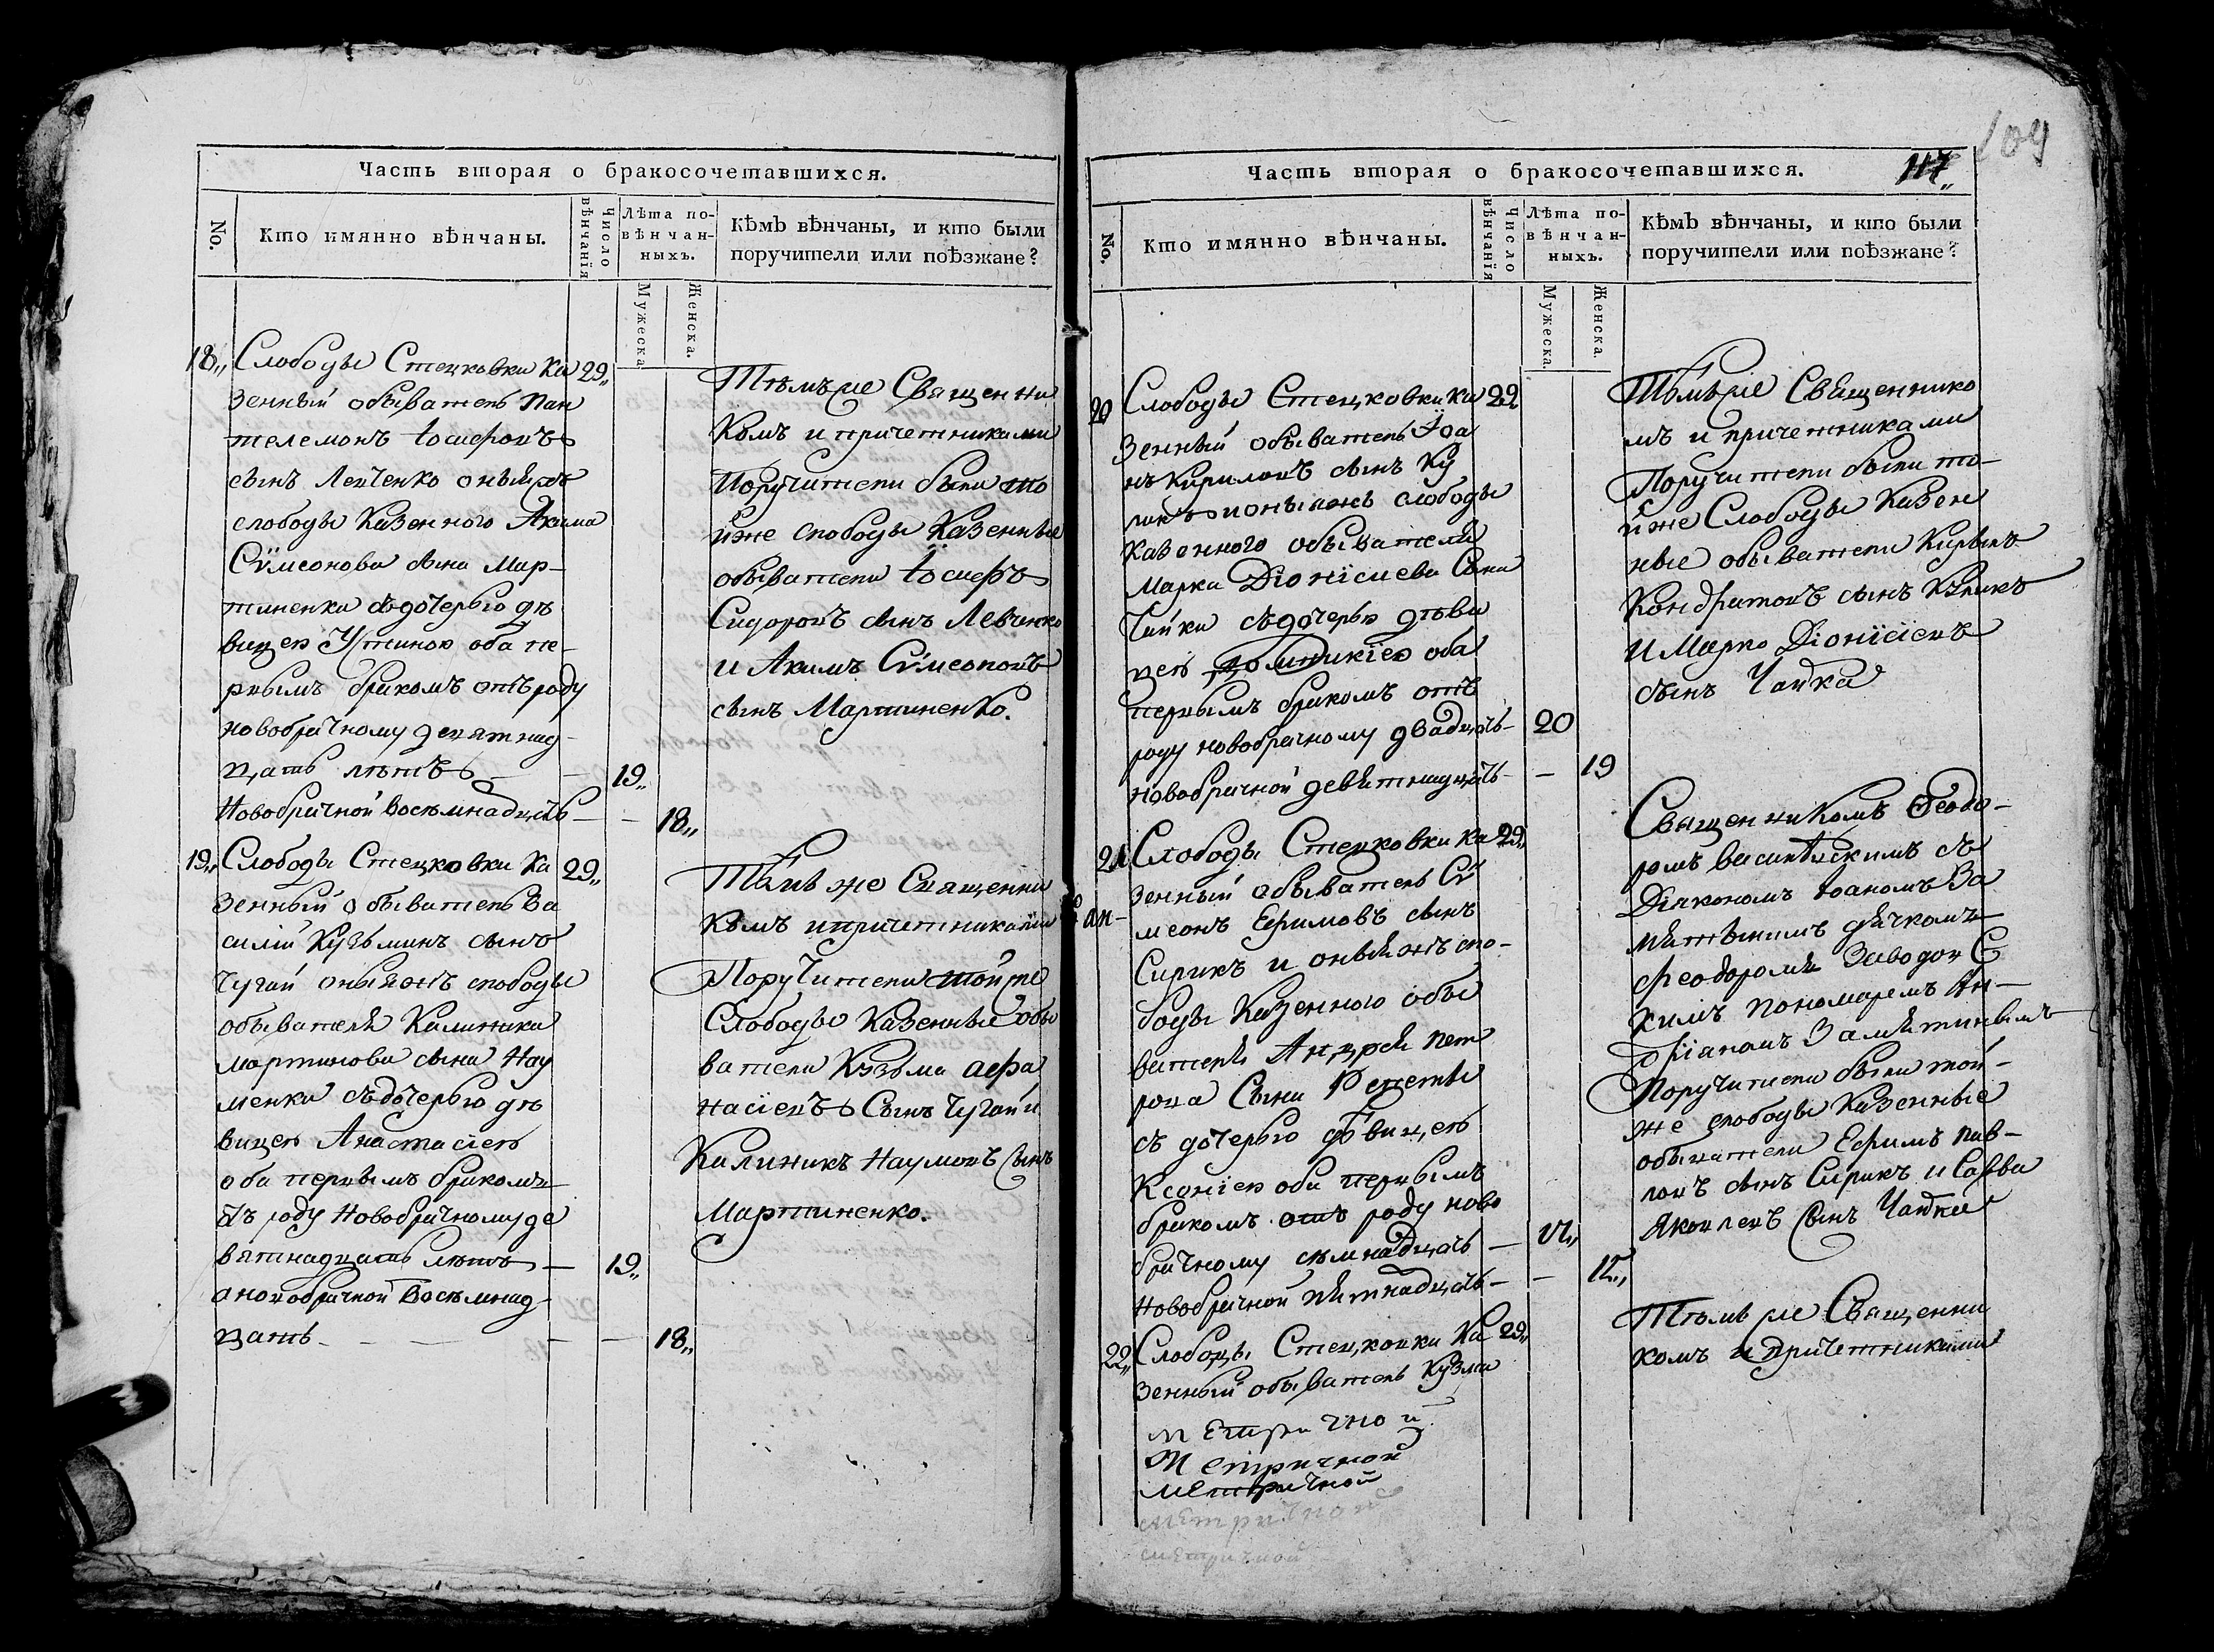 Часть вторая о бракосочетавшихся.
No.
Кто имянно вѣнчаны.
Число вѣнчанія
Лѣта по-
вѣнчан-
ныхъ.
Мужеска.
Женска.
Кѣмъ вѣнчаны, и кто были
поручители или поѣзжане?
18,, Слободы Стецковки Ка 29,,
зенный обыватель Пан
телемонъ Іосифовъ
сынъ Левченко оныяжъ
слободы Казенного Акима
Сѵмеонова сына Мар-
тиненка съдочерью дѣ
вицею Устиною оба пе-
рвымъ бракомъ отъ роду
новобрачному девятнад-
цать лѣтъ — 19,,
Новобрачной Восѣмнадцать — — 18,,
Тѣмъже Священни
комъ и причетниками
Поручители были то
йже слободы Казенные
обыватели Іосифъ
Сидоровъ сынъ Левченко
и Акимъ Сѵмеоновъ
сынъ Мартиненко.
19,, Слободы Стецковки Ка 29,,
зенный обыватель Ва
силій Кузьминъ сынъ
Чугай оныяжъ слободы
обывателя Калиника
мартинова сына Нау
менка съдочерью дѣ
вицею Анастасіею
оба первымъ бракомъ
отъ роду Новобрачному де
вятнадцать лѣтъ — 19,,
а новобрачной Восѣмнад-
цать — — 18,,
Тѣмъ же Священни
комъ ипричетниками
Поручители тойже
Слободы Казенные обы
ватели Кузьма афа
насіевъ Сынъ Чугай и
Калиникъ Наумовъ сынъ
Мартиненко.
Часть вторая о бракосочетавшихся.
117,,
109
No.
Кто имянно вѣнчаны.
Число вѣнчанія
Лѣта по-
вѣнчан-
ныхъ.
Мужеска.
Женска.
Кѣмъ вѣнчаны, и кто были
поручители или поѣзжане?
20 Слободы Стецковки Ка 29
зенный обыватель Іоа
нъ Кириловъ сынъ Ку
ликъ и оныяжъ слободы
Казенного обывателя
Марка Діонісиева Сына
Чайки съдочерью дѣви
цею Домникіею оба
первымъ бракомъ отъ
роду новобрачному двадцать — 20
новобрачной девятнадцать — — 19
Тѣмъже Священнико
мъ и причетниками
Поручители были то-
йже Слободы Казен
ные обыватели Кирылъ
Кондратовъ сынъ Куликъ
И Марко Діонісіевъ
сынъ Чайка
21 Слободы Стецковки Ка 29,,
зенный обыватель Сѵ
меонъ Ефимовъ сынъ
Сирикъ и оныяжъ сло-
боды Казенного обы
вателя Андрея Пет
рова Сына
съ дочерью дѣвицею
Ксеніею оба первымъ
бракомъ отъ роду ново
брачному сѣмнадцать —
Новобрачной пятнадцать — —
Священникомъ Феодо-
ромъ съ
Діякономъ Іоаномъ За
мятнинымъ дячкомъ
феодоромъ Заводовс
кимъ пономаремъ Ан-
дріаномъ Замятинымъ
Поручители были той-
же слободы Казенные
обыватели Ефимъ пав-
ловъ сынъ Сирикъ и Савва
Яковлевъ сынъ Чайка
22,, Слободы Стецковки Ка 29,,
зенный обыватель Кузма
Тѣмъ же Священни
комъ и причетниками
метричной
Метричной
метричной
метричной
метричной